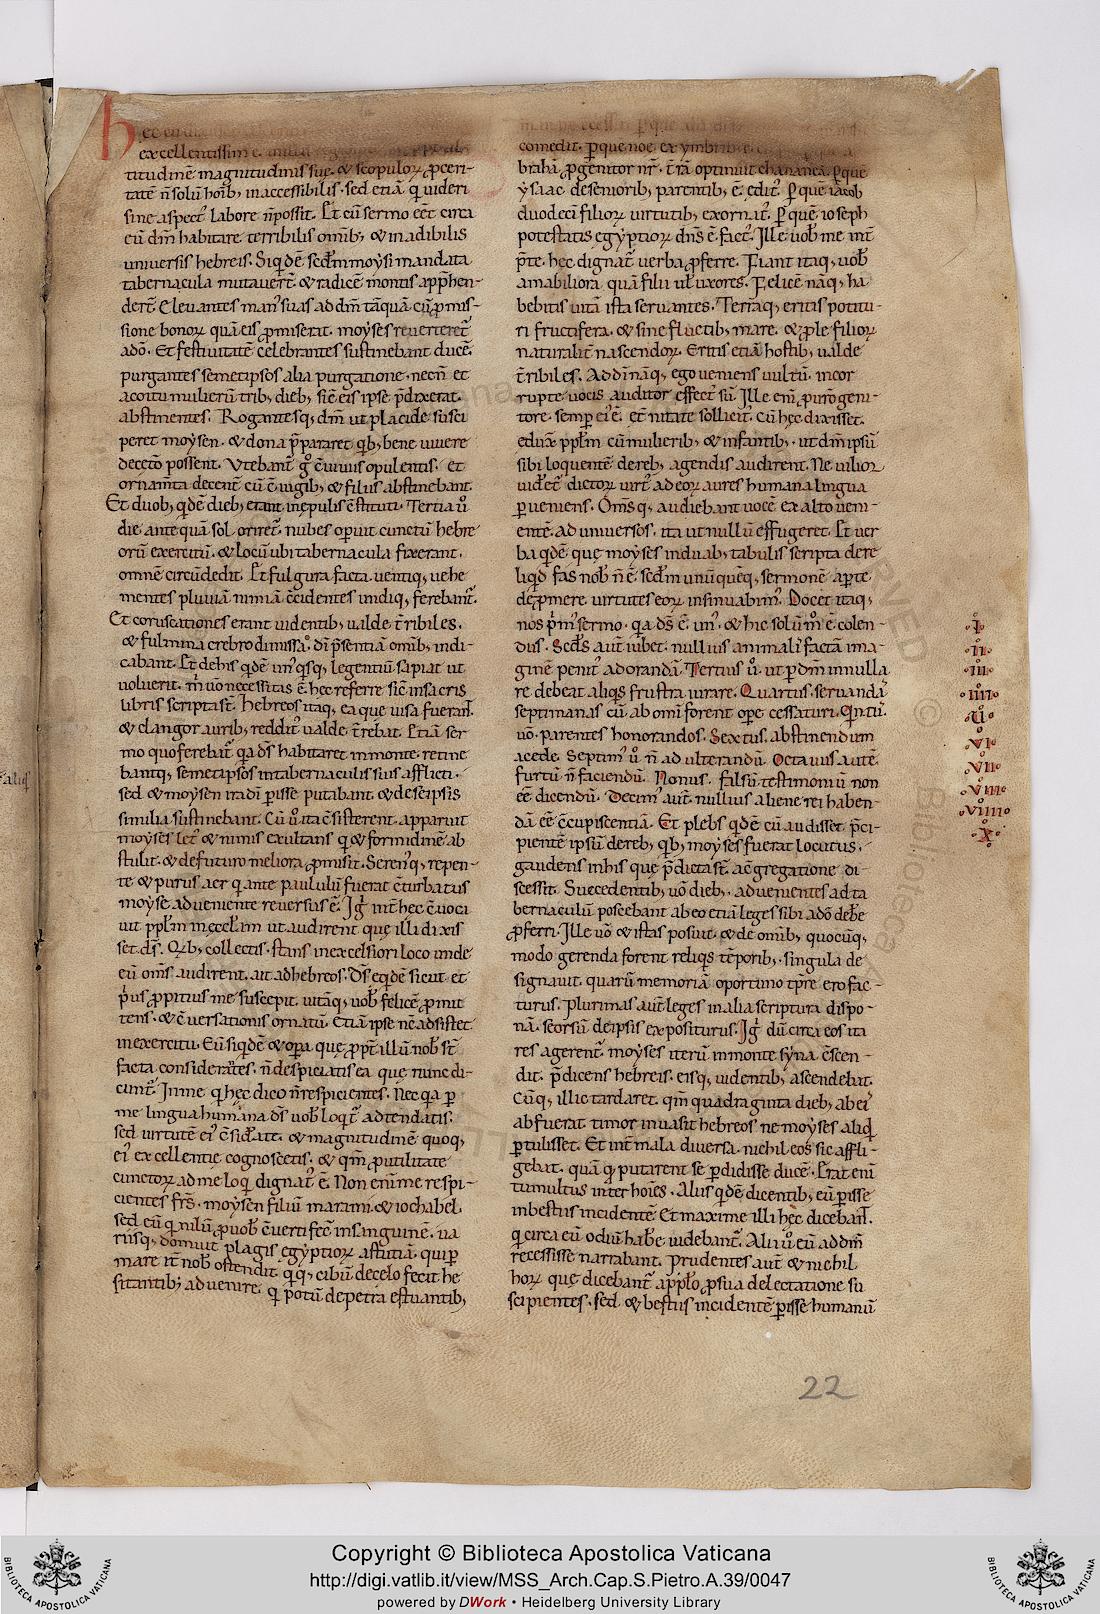 titudinē magnitudinis suę. & scopuloꝝ ꝓceri-
tatē n̄ solū hoīb; inaccessibilis. sed etiā q̇ uideri
sine aspect᷒ labore n̄ possit. Et cū sermo eēt circa
eū dm̄ habitare terribilis om̄ib; & inadibilis
uniuersis hebreis. Siq̇dē scd̄m moysi mandata
tabernacula mutauer̄t & radicē montis app̄hen-
der̄t. Eleuantes man᷒ suas ad dm̄ tāquā cū ꝓmis-
sione bonoꝝ quā eis ꝓmiserat. moyses reuerteret̄
a dō. Et festiuitatē celebrantes sustinebant ducē.
purgantes semetipsos alia purgatione. necn̄ et
a coitu mulierū trib; dieb; sic̄ eis ipse p̄dixerat.
abstinentes. Rogantesq; dm̄ ut placide susci
peret moysen. & dona p̄pararet qb; bene uiuere
decet̄o possent. Utebant̄ g̊ c̄uiuiis opulentis. et
ornam̄ta decent̄ cū c̄iugib; & filiis abstinebant.
Et duob; q̇dē dieb; erant in epulis c̄stituti. Tertia ů
die antequā sol oriret̄. nubes opuit cunctū hebre
orū exercitū. & locū ubi tabernacula fixerant.
omnē circūdedit. Et fulgura facta uentiq; uehe
mentes pluuiā nimiā c̄cidentes undiq; ferebant̄.
Et coruscationes erant uidentib; ualde t̄ribiles.
& fulmina crebro dimissa. dī p̄sentiā om̄ib; indi-
cabant. Et de his q̇dē un᷒ q̇sq; legentiū sapiat ut
uoluerit. m̊ uō necessitas ē. hęc referre sic̄ in sacris
libris scripta st̄. Hebreos itaq; ea que uisa fuerant.
& clangor aurib; reddit᷒ ualde t̄rebat. Etiā ser
mo quo ferebat̄ q̇a dš habitaret in monte. retine
bantq; semetipsos in tabernaculis suis afflicti.
sed & moysen ira dī ꝑisse putabant. & de se ipsis
similia sustinebant. Cū ů ita c̄sisterent. apparuit
moyses let᷒ & nimis exultans q̇ & formidinē ab
stulit. & de futuro meliora ꝓmisit. Seren᷒q; repen-
te & purus aer q̇ ante paululū fuerat c̄turbatus
moyse adueniente reuersus ē. Iḡ int̄ hęc c̄uoci
uit pp̄lm in ęcclm̄ ut audirent que illi dixis
set dš. Qib; collectis. stans in excelsiori loco unde
eū om̄s audirent. ait ad hebreos. Dš eq̇dē sicut et
p̊us ꝓpitius me suscepit. uitāq; uob̄ felicē ꝓmit
tens. & c̄uersationis ornatū. Etiā ipse nc̄ adsistet
in exercitu. Eū siq̇dē & oꝑa que ꝓpt̄ illū nob̄ st̄
facta considerātes. n̄ despiciatis ea que nunc di-
cunt̄. In me q̇ hęc dico n̄ respicientes. Nec q̇a ꝑ
me lingua humana dš uob̄ loq̇t̄ adtendatis.
sed uirtutē ei᷒ c̄siderate. & magnitudinē quoq;
ei᷒ excellentię cognoscetis. & qm̄ ꝓ utilitate
cunctoꝝ ad me loq̇ dignat᷒ ē. Non enim me respi-
cientes frs̄. moysen filiū marami & iochabel.
sed eū q̇ nilū ꝓ uob̄ c̄uerti fec̄ in sanguinē. ua
riisq; domuit plagis egyptioꝝ astutiā. qui ꝑ
mare it̄ nob̄ ostendit. q̇q; cibū de celo fecit he
sitantib; aduenire. q̇ potū de petra ęstuantib;
comedit. ꝑ que noe ex
brahā ꝓgenitor nr̄. t̄rā optinuit chananea. ꝑque
ysaac de seniorib; parentib; ē edit᷒. ꝑ que iacob
duodecī filioꝝ uirtutib; exornat᷒. ꝑ quē ioseph
potestatis egyptioꝝ dn̄s ē fact᷒. Ille uob̄ me int̄
p̄te. hęc dignat᷒ uerba ꝓferre. Fiant itaq; uob̄
amabiliora quā filii ul̄ uxores. Felicē nāq; ha
bebitis uitā ista seruantes. Terraq; eritis potitu-
ri fructifera. & sine fluctib; mare. & ꝓle filioꝝ
naturalit̄ nascendoꝝ. Eritis etiā hostib; ualde
t̄ribiles. Ad dī nāq; ego ueniens uultū. incor
rupte uocis auditor effect᷒ sū. Ille enī ꝓ uro geni-
tore. semp ei᷒ ē. ęt̄nitate sollicit᷒. Cū hęc dixisset.
eduxit pplm̄ cū mulierib; & infantib;. ut dm̄ ipsū
sibi loquentē de reb; agendis audirent. Ne uilior
uideret̄ dictoꝝ uirt᷒ ad eoꝝ aures humana lingua
ꝑueniens. Om̄sq; audiebant uocē ex alto ueni-
entē. ad uniuersos. ita ut nullū effugeret. Et uer
ba q̇dē quę moyses in duab; tabulis scripta dere
liq̇d fas nob̄ n̄ ē. scd̄m unūquēq; sermonē aꝑte
depmere. uirtutes eoꝝ insinuabim᷒. Docet itaq;
nos p̊m᷒ sermo. q̇a dš ē un᷒. & hic solū m̊ ē colen-
dus. Scd̄s aut̄ iubet. nullius animali᷒ facta ima-
ginē penit᷒ adorandā. Tertius ů. ut ꝑ dm̄ in nulla
re debeat aliq̇s frustra iurare. Quartus. seruandā
septimanas cū ab om̄i forent oꝑe cessaturi. Qintū.
uō. parentes honorandos. Sextus. abstinendum
a cede. Septim᷒ ů n̄ adulterandū. Octauus autē.
furtū n̄ faciendū. Nonus. falsū testimoniū non
eē dicendū. Decim᷒ aut̄. nullius aliene rei haben-
dā eē c̄cupiscentiā. Et plebs q̇dē cū audisset p̄ci-
pientē ipsū de reb; qb; moyses fuerat locutus.
gaudens in his que p̄dicta st̄. a c̄gregatione di-
scessit. Succedentib; uō dieb;. aduenientes ad ta
bernaculū poscebant ab eo etiā leges sibi a dō deb̄e
ꝓferri. Ille uō & istas posuit. & de om̄ib; quocūq;
modo gerenda forent reliq̇s tēporib;. singula de
signauit. quarū memoriā oportuno tp̄re ero fac-
turus. Plurimas aut̄ leges in alia scriptura dispo-
nā. seorsū de ipsis expositurus. Iḡ dū circa eos ita
res agerent̄. moyses iterū in monte syna c̄scen-
dit. p̄dicens hebreis. eisq; uidentib; ascendebat.
Cūq; illic tardaret. qm̄ quadraginta dieb; ab ei᷒
abfuerat timor inuasit hebreos ne moyses aliq̇d
ꝑtulisset. Et int̄ mala diuersa. nichil eos sic affli-
gebat. quā q̇ putarent se ꝑdidisse ducē. Erat enī
tumultus inter hoīes. Aliis q̇dē dicentib; eū ꝑisse
in bestias incidentē. Et maxime illi hęc dicebant.
q̇ circa eū odiū hab̄e uidebant̄. Alii ů eū ad dm̄
recessisse narrabant. Prudentes aut̄ & nichil
horꝝ que dicebant̄ a pp̄lo ꝓ sua delectatione su
scipientes. sed & bestiis incidentē ꝑisse humanū
·I·
·II·
·III·
·IIII·
·V·
·VI·
·VII·
·VIII·
·VIIII·
·X·
22
Copyright © Biblioteca Apostolica Vaticana
http://digi.vatlib.it/view/MSS_Arch.Cap.S.Pietro.A.39/0047
powered by DWork • Heidelberg University Library